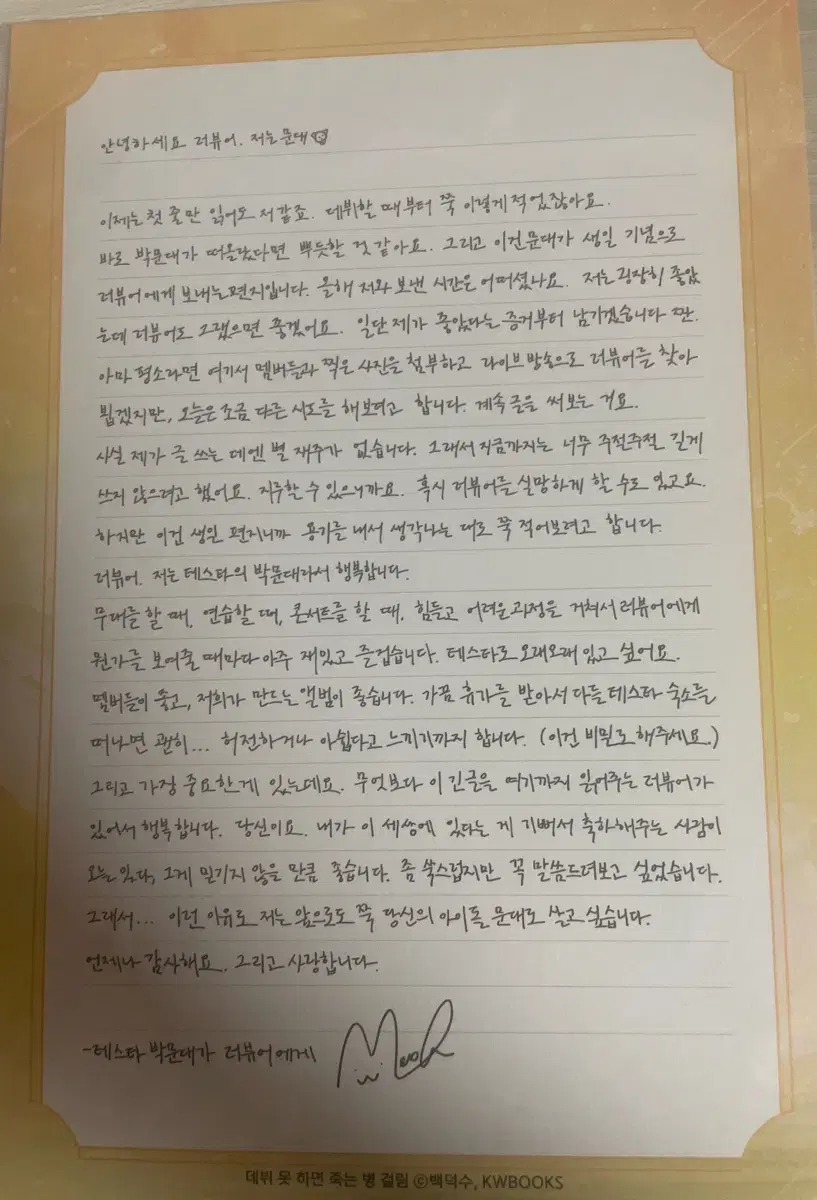 안녕하세요 러뷰어. 저는 문대
이제는 첫 줄만 읽어도 저 같죠. 데뷔할 때부터 쭉 이렇게 적었잖아요.
바로 박문대가 떠올랐다면 뿌듯할 것 같아요. 그리고 이건 문대가 생일 기념으로
러뷰어에게 보내는 편지입니다. 올해 저와 보낸 시간은 어떠셨나요. 저는 굉장히 좋았
는데 러뷰어도 그랬으면 좋겠어요. 일단 제가 좋았다는 증거부터 남기겠습니다 짠.
아마 평소라면 여기서 멤버들과 찍은 사진을 첨부하고 라이브 방송으로 러뷰어를 찾아
뵙겠지만, 오늘은 조금 다른 시도를 해보려고 합니다. 계속 글을 써 보는 거요.
사실 제가 글 쓰는 데엔 별 재주가 없습니다. 그래서 지금까지는 너무 주적주절 길게
쓰지 않으려고 했어요. 지루할 수 있으니까요. 혹시 러뷰어를 실망하게 할 수도 있고요.
하지만 이건 생일 편지니까 용기를 내서 생각나는 대로 쭉 적어보려고 합니다.
러뷰어. 저는 테스타의 박문대라서 행복합니다.
무대를 할 때, 연습할 때, 콘서트를 할 때, 힘들고 어려운 과정을 거쳐서 러뷰어에게
뭔가를 보여줄 때마다 아주 재밌고 즐겁습니다. 테스타로 오래오래 있고 싶어요.
멤버들이 좋고, 저희가 만드는 앨범이 좋습니다. 가끔 휴가를 받아서 다들 테스타 숙소를
떠나면 괜히... 허전하거나 아쉽다고 느끼기까지 합니다. (이건 비밀로 해주세요.)
그리고 가장 중요한 게 있는데요. 무엇보다 이 긴 글을 여기까지 읽어주는 러뷰어가
있어서 행복합니다. 당신이요. 내가 이 세상에 있다는 게 기뻐서 축하해주는 사람이
오늘 있다, 그게 믿기지 않을 만큼 좋습니다. 좀 쑥스럽지만 꼭 말씀드려보고 싶었습니다.
그래서... 이런 이유로 저는 앞으로도 쭉 당신의 아이돌 문대로 살고 싶습니다.
언제나 감사해요. 그리고 사랑합니다.
-테스타 박문대가 러뷰어에게
데뷔 못 하면 죽는 병 걸림 ©백덕수, KWBOOKS